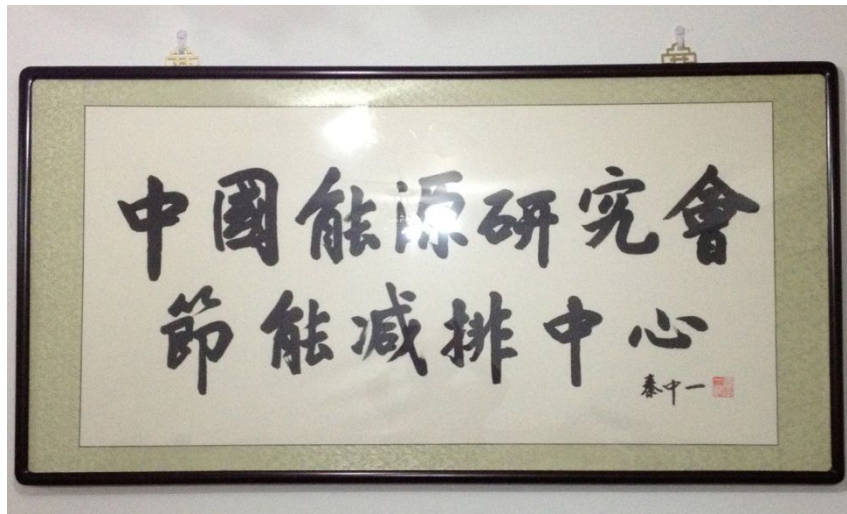 中國能源研究會
節能减排中心
秦中一